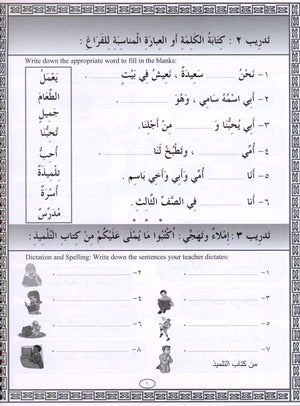 تدريب ٢ : كتابَةُ الكَلِمَة أو العبارَة المُناسبَة للفَراغ :
Write down the appropriate word to fill in the blanks:
١- نَحْنُ ........ سَعيدَة ، نَعيشُ في بَيْتٍ ........ .
٢- أَبي اسْمُهُ سَامي ، وَهُوَ ........ .
٣- أَبي يُحِبُّنا وَ ........ مِنْ أَجْلنَا.
٤- أُمِّي ........ ، وتَطْبُخُ لَنا ........ .
٥- أَنا ........ أُمِّي وَأَبي وَأَخِي باسِم .
٦- أَنا ........ في الصَّفِّ الثالث.
يَعْمَلُ
الطَّعَامَ
جَميل
تُحِبُّنا
أُحِبُّ
تلميذَة
أُسْرَة
مُدَرِّسٌ
تدريب ٣ : إملاءٌ وتهجّي : اُكْتُبُوا مَا يُمْلَى عَلَيْكُمْ مِنْ كِتاب التِّلْميذ :
Dictation and Spelling: Write down the sentences your teacher dictates:
١- ........ ٢- ........
٣- ........ ٤- ........
٥- ........ ٦- ........
٧- ........ ٨- ........
من كتاب التلميذ
٦